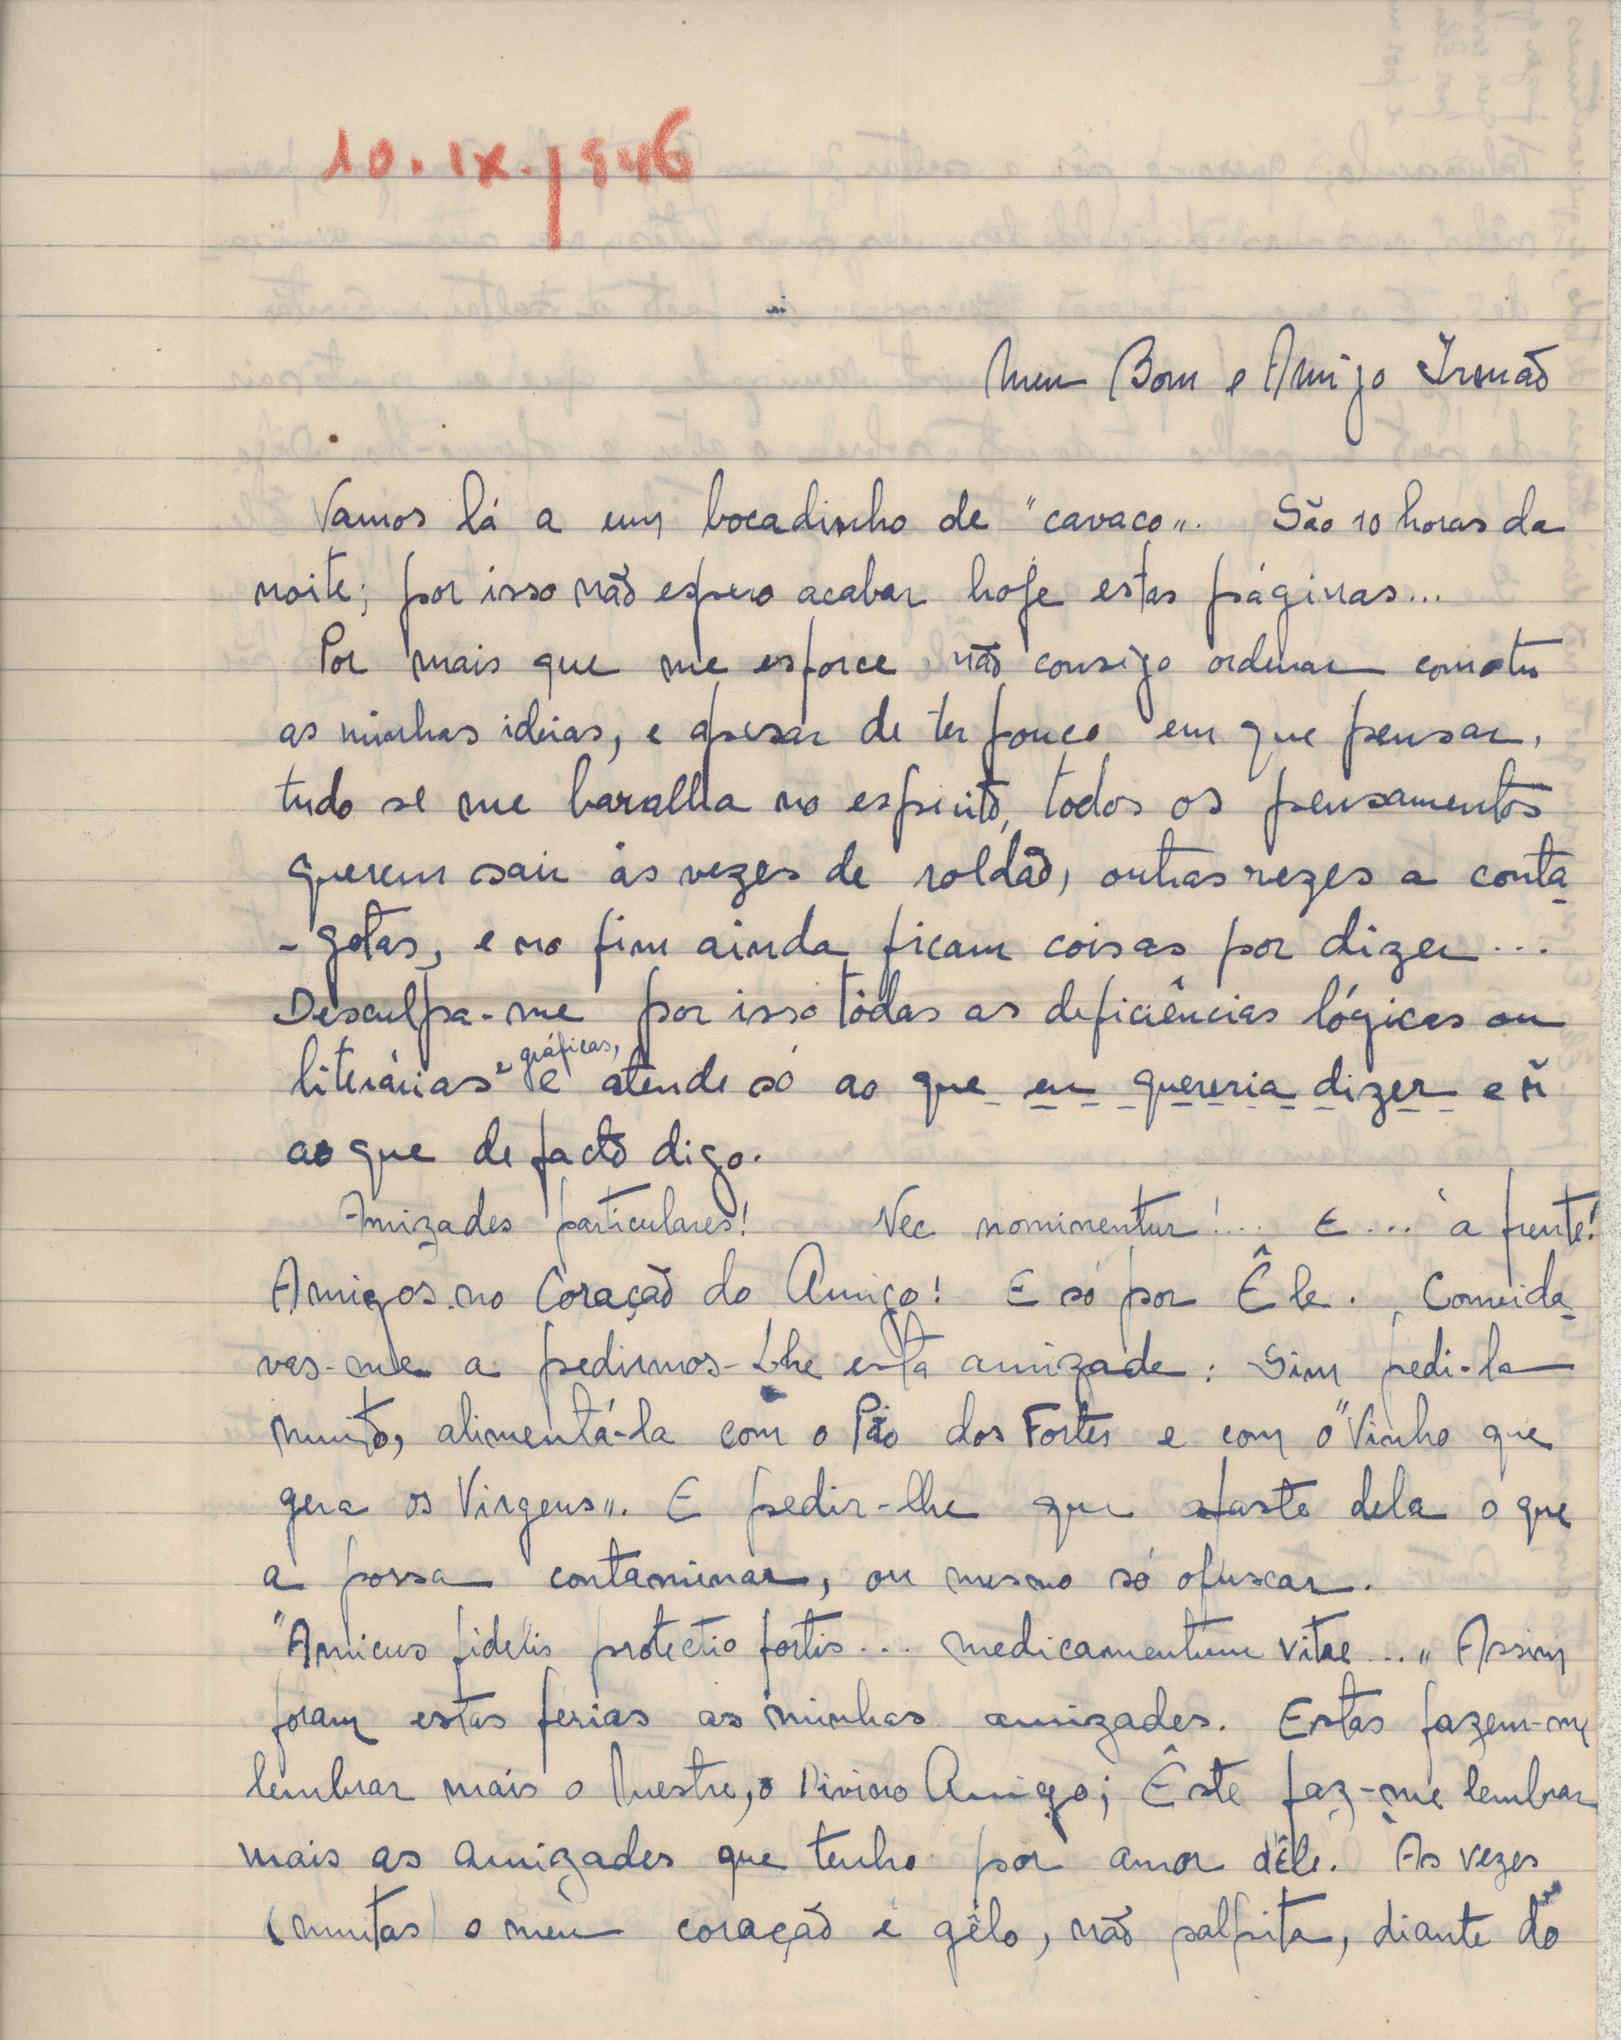 10.IX.1946
Meu Bom e Amigo Irmão
Vamos lá a um bocadinho de "cavaco". São 10 horas da
noite; por isso não espero acabar hoje estas páginas...
Por mais que me esforce não consigo ordenar como tu
as minhas ideias, e apesar de ter pouco em que pensar,
tudo se me baralha no espírito, todos os pensamentos
querem sair às vezes de roldão, outras vezes a conta-
-gotas, e no fim ainda ficam coisas por dizer...
Desculpa-me por isso tôdas as deficiências lógicas ou
literárias e gráficas, e atende só ao que eu quereria dizer e ñ
ao que de facto digo.
Amizades particulares! Nec nominentur!... E... à frente!
Amigos no Coração do Amigo! E só por Êle. Convida-
vas-me a pedirmos-Lhe esta amizade: Sim pedi-la
muito, alimentá-la com o Pão dos Fortes e com o "Vinho que
gera os Virgens". E pedir-lhe que afaste dela o que
a possa contaminar, ou mesmo só ofuscar.
"Amicus fidelis protectio fortis... medicamentum vitae..." Assim
foram estas férias as minhas amizades. Estas fazem-me
lembrar mais o Mestre, o Divino Amigo; Êste faz-me lembrar
mais as amizades que tenho por amor dÊle. Às vezes
(muitas) o meu coração é gêlo, não palpita, diante do